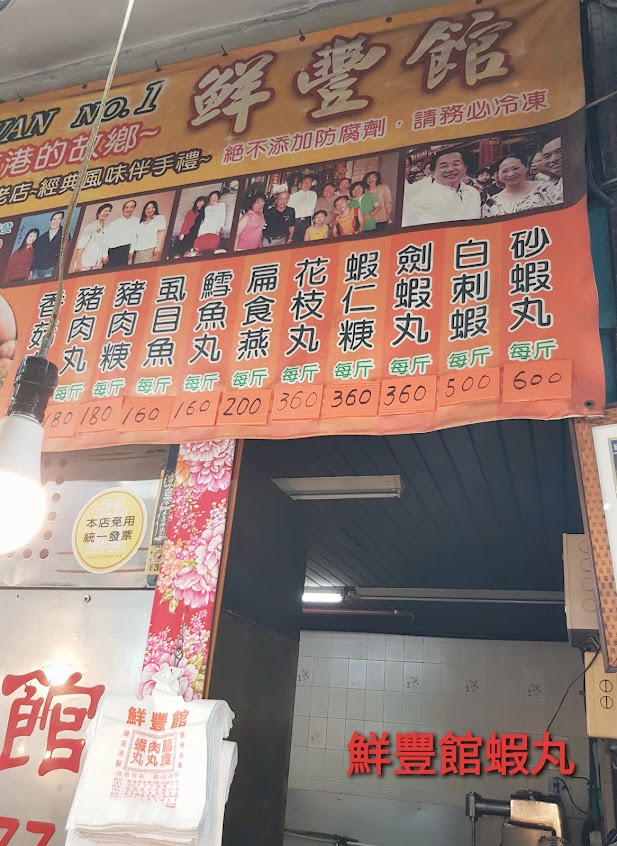 UAN NO.1
鮮豐館
港的故鄉~
老店~經典風味伴手禮~
絕不添加防腐劑．請務必冷凍
砂蝦丸 每斤 600
白刺蝦 每斤 500
劍蝦丸 每斤 360
蝦仁糖 每斤 360
花枝丸 每斤 360
扁食燕 每斤 200
鱈魚丸 每斤 160
虱目魚 每斤 160
豬肉糖 每斤 180
豬肉丸 每斤 180
香菇
本店免用
統一發票
館
鮮豐館
扁食
肉丸
蝦丸
鮮豐館蝦丸